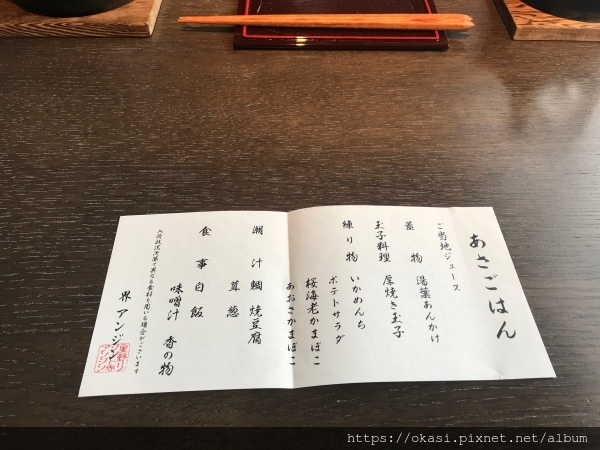 あさごはん
ご当地ジュース
蓋 物 湯葉あんかけ
玉子料理 厚焼き玉子
練り物 いかめんち
ポテトサラダ
桜海老かまぼこ
あおさかまぼこ
潮 汁 鯛 焼豆腐
茸 葱
食 事 白飯
味噌汁 香の物
入荷状況次第で異なる食材を用いる場合がございます
界 アンジン
https://okasi.pixnet.net/album